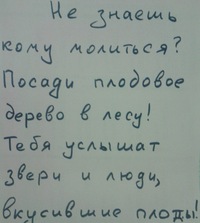 Не знаешь
кому молиться?
Посади плодовое
дерево в лесу!
Тебя услышат
звери и люди,
вкусившие плоды!